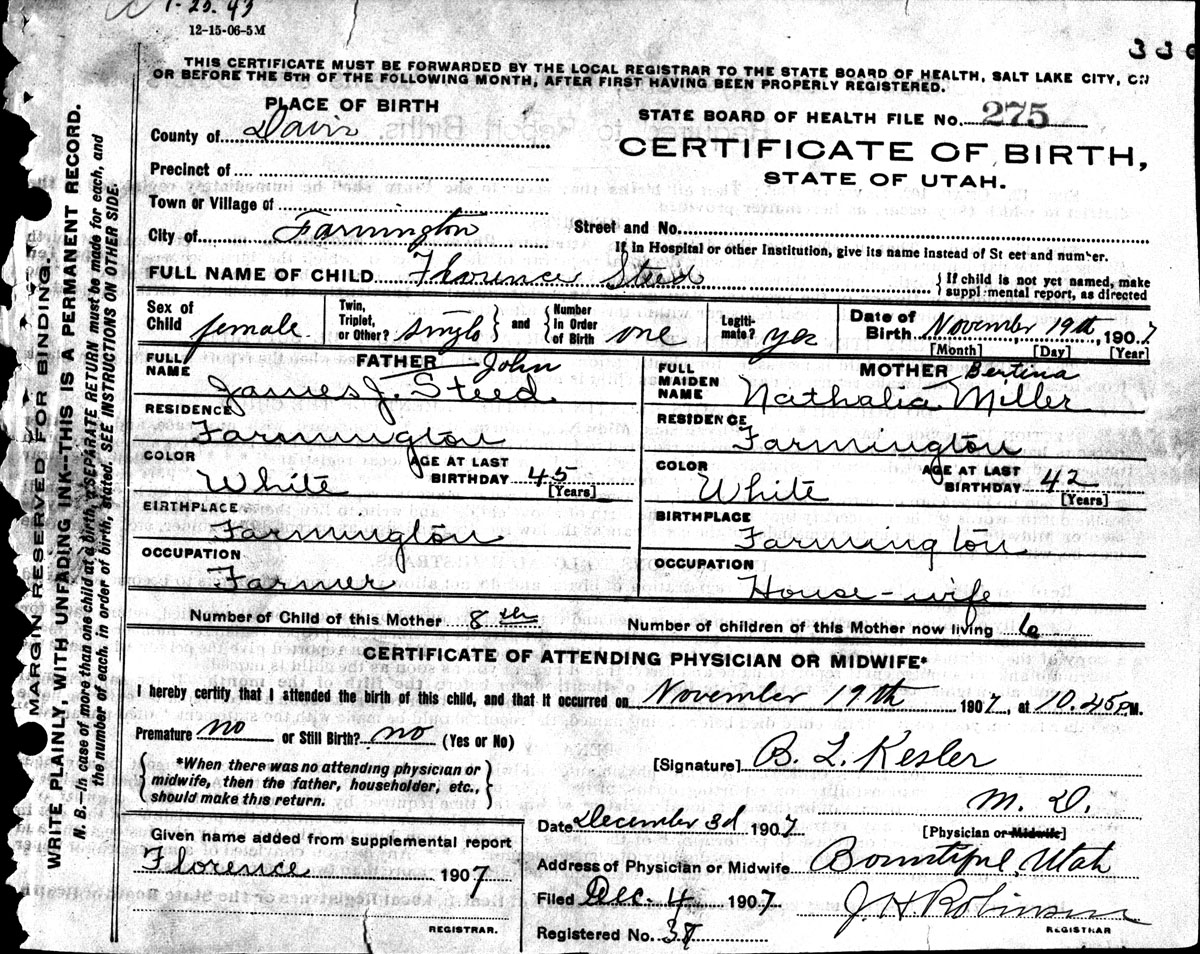 1-25.43
12-15-06-5M
THIS CERTIFICATE MUST BE FORWARDED BY THE LOCAL REGISTRAR TO THE STATE BOARD OF HEALTH, SALT LAKE CITY, ON
OR BEFORE THE 5TH OF THE FOLLOWING MONTH, AFTER FIRST HAVING BEEN PROPERLY REGISTERED.
MARGIN RESERVED FOR BINDING.
WRITE PLAINLY, WITH UNFADING INK—THIS IS A PERMANENT RECORD.
N. B.—In case of more than one child at a birth, a SEPARATE RETURN must be made for each, and
the number of each, in order of birth, stated. SEE INSTRUCTIONS ON OTHER SIDE.
PLACE OF BIRTH
County of Davis
Precinct of
Town or Village of
City of Farmington
STATE BOARD OF HEALTH FILE No. 275
CERTIFICATE OF BIRTH,
STATE OF UTAH.
Street and No.
If in Hospital or other Institution, give its name instead of St eet and number.
FULL NAME OF CHILD Florence Steed
If child is not yet named, make
suppl mental report, as directed
Sex of Child female
Twin, Triplet, or Other? single and Number In Order of Birth one
Legiti-mate? yes
Date of Birth November 19th, 1907
[Month] [Day] [Year]
FATHER John
FULL NAME James J. Steed
RESIDENCE
Farmington
COLOR White
AGE AT LAST BIRTHDAY 45
[Years]
BIRTHPLACE
Farmington
OCCUPATION
Farmer
MOTHER Bertina
FULL MAIDEN NAME Nathalia Miller
RESIDENCE
Farmington
COLOR White
AGE AT LAST BIRTHDAY 42
[Years]
BIRTHPLACE
Farmington
OCCUPATION
House-wife
Number of Child of this Mother 8th
Number of children of this Mother now living 6
CERTIFICATE OF ATTENDING PHYSICIAN OR MIDWIFE*
I hereby certify that I attended the birth of this child, and that it occurred on November 19th 1907, at 10.45 P.M.
Premature no or Still Birth? no (Yes or No)
*When there was no attending physician or
midwife, then the father, householder, etc.,
should make this return.
[Signature] B. L. Kesler
M. D.
Date December 3d 1907
[Physician or Midwife]
Given name added from supplemental report
Florence 1907
REGISTRAR.
Address of Physician or Midwife Bountiful, Utah
Filed Dec. 4 1907
J. H. Robinson
REGISTRAR
Registered No.